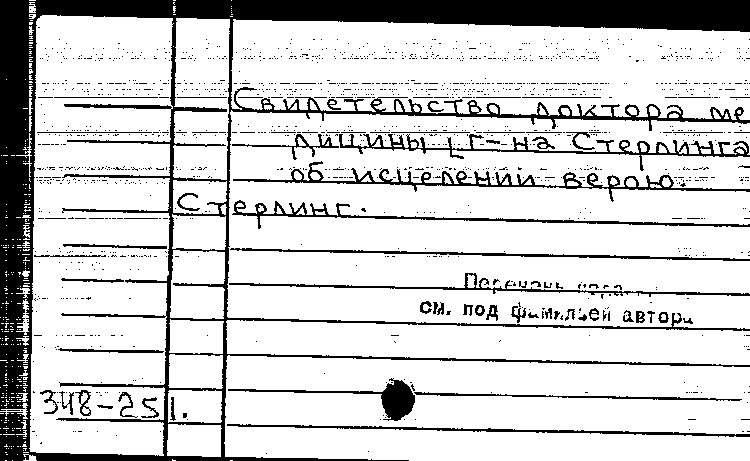 Свидетельство доктора ме
дицины [г-на Стерлинга
об исцелении верою.
Стерлинг.
Перечень
см. под фамильей автора
348-251.